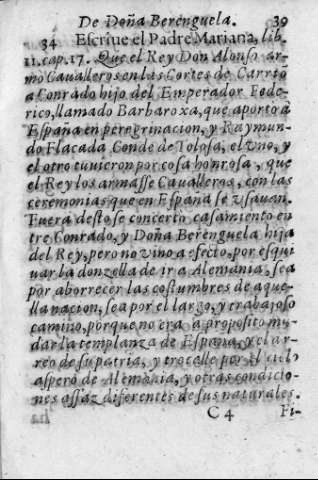 De Doña Berenguela. 39
34 Escriue el Padre Mariana, lib.
11. cap. 17. Que el Rey Don Alonso ar-
mo Caualleros en las Cortes de Carriō
a Conrado hijo del Emperador Fede-
rico, llamado Barbaroxa, que aporto a
España en peregrinacion, y Raymun-
do Flacada Conde de Tolosa, el vno, y
el otro tuuieron por cosa honrosa, que
el Rey los armasse Caualleros, con las
ceremonias que en España se vsauan.
Fuera desto se concertò casamiento en
tre Conrado, y Doña Berenguela hija
del Rey, pero no vino a efecto, por esqui
uar la donzella de ir a Alemania, sea
por aborrecer las costumbres de aque-
lla nacion, sea por el largo, y trabajoso
camino, porque no era a proposito mu-
dar la templanza de España, y el ar-
reo de su patria, y trocalle por el cielo
aspero de Alemania, y otras condicio-
nes assaz diferentes de sus naturales.
C 4 Fi-